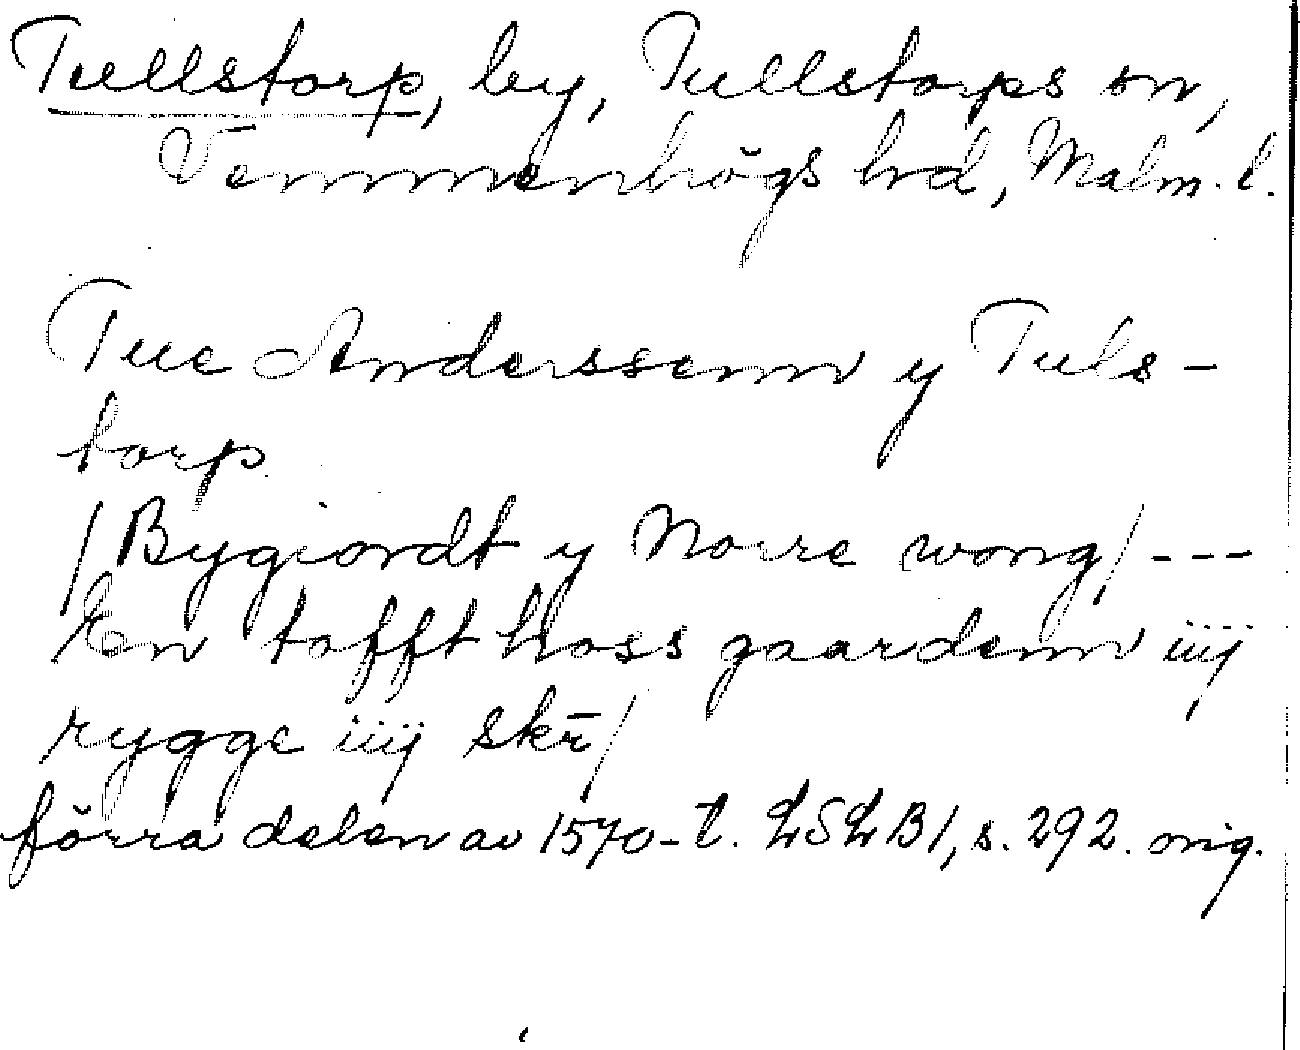 Tullstorp, by, Tullstorps sn,
Vemmenhögs hd, Malm. l.
Tue Anderssenn y Tuls-
torp
/Bygiordt y Norre wong/ ---
En tofft hoss gaardenn iiij
rygge iiij skr̄/
förra delen av 1570-t. LSLB1, s. 292. orig.